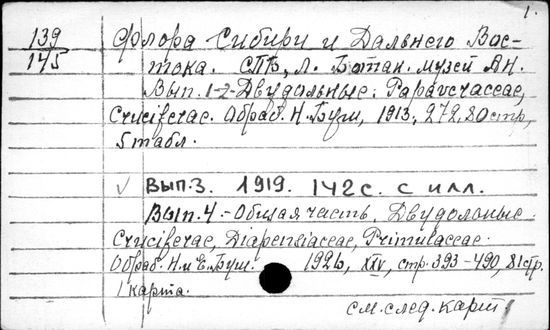 1.
139 Флора Сибири и Дальнего Вос-
145 тока. СПБ, Л. Ботан. музей АН.
Вып. 1-2-Двудольные: Papaveraceae,
Cruciferae. Обраб. Н. Буш, 1913, 272, 80 стр,
5 табл.
√ ВЫП.3. 1919. 142 с. с илл.
Вып. 4.-Общая часть, Двудольные
Cruciferae, Diapensiaceae, Primulaceae.
Обраб. Н. и Е. Буш. 1926, XXV, стр. 393-490, 81 стр.
1 карта.
см. след. карт.